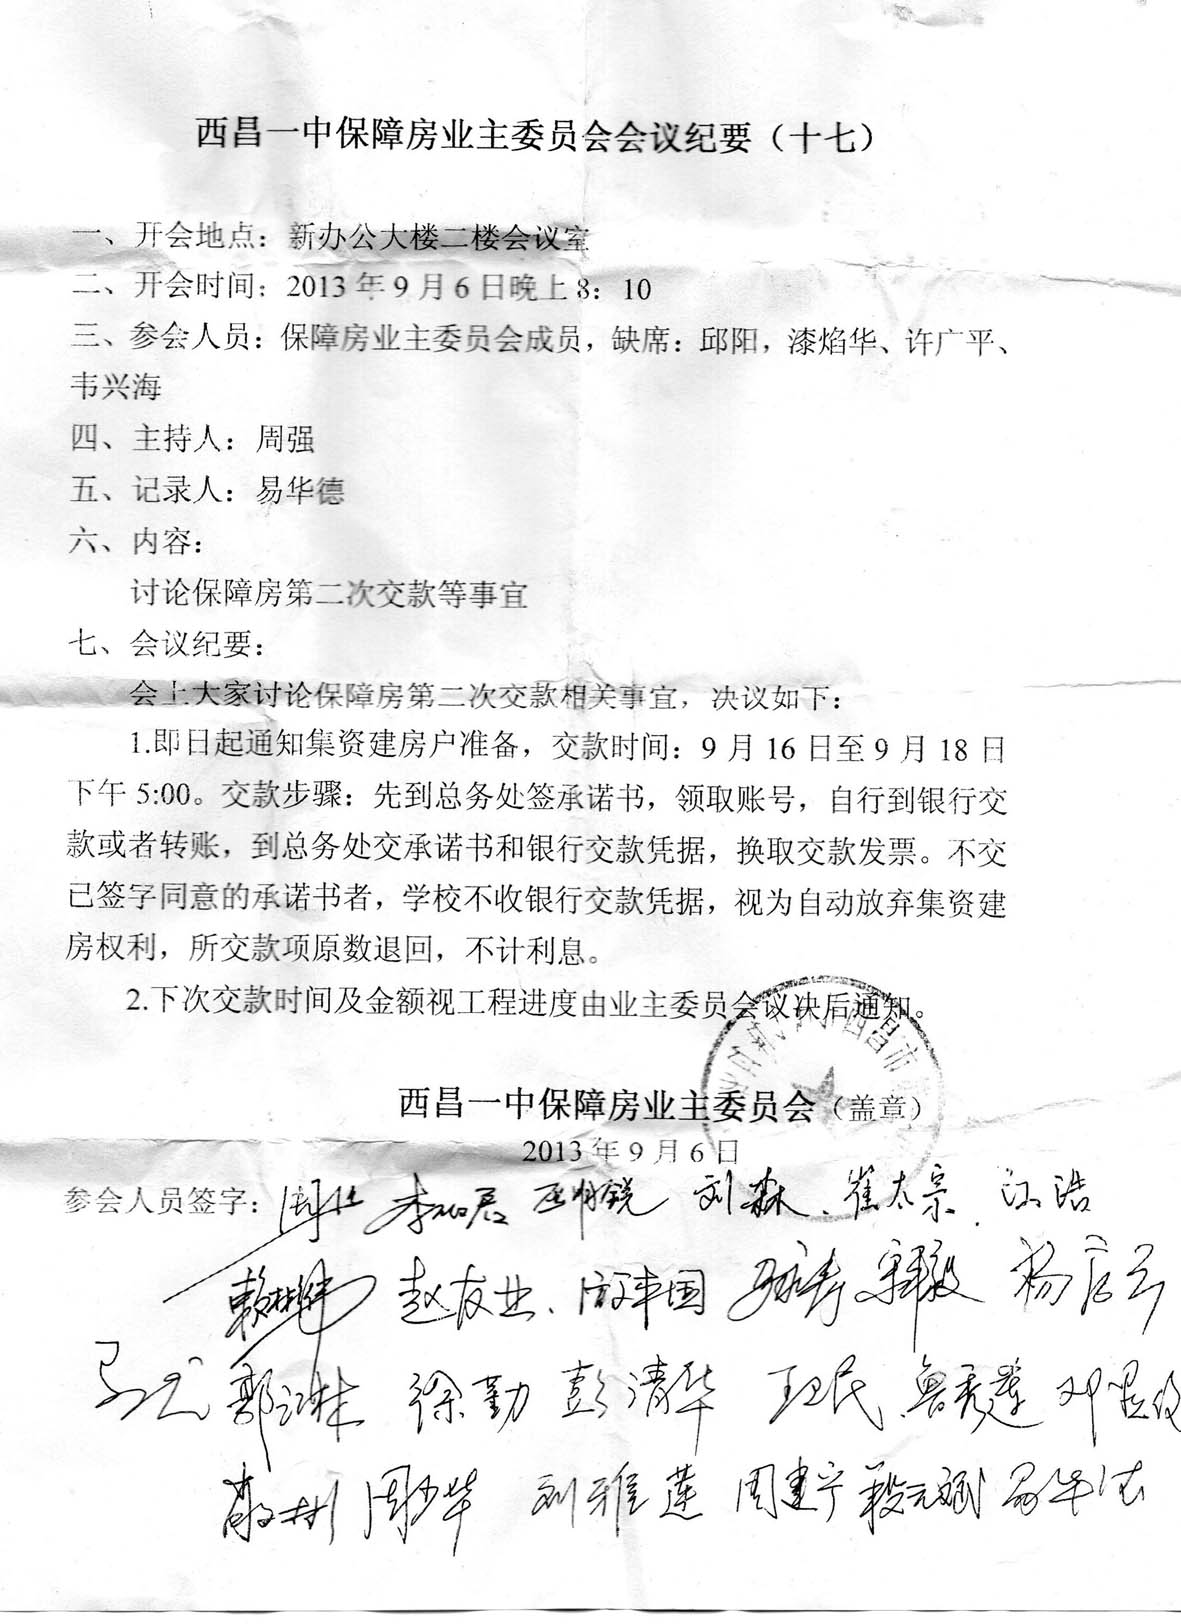 西昌一中保障房业主委员会会议纪要（十七）
一、开会地点：新办公大楼二楼会议室
二、开会时间：2013年9月6日晚上8：10
三、参会人员：保障房业主委员会成员，缺席：邱阳，漆焰华、许广平、
韦兴海
四、主持人：周强
五、记录人：易华德
六、内容：
讨论保障房第二次交款等事宜
七、会议纪要：
会上大家讨论保障房第二次交款相关事宜，决议如下：
1.即日起通知集资建房户准备，交款时间：9月16日至9月18日
下午5:00。交款步骤：先到总务处签承诺书，领取账号，自行到银行交
款或者转账，到总务处交承诺书和银行交款凭据，换取交款发票。不交
已签字同意的承诺书者，学校不收银行交款凭据，视为自动放弃集资建
房权利，所交款项原数退回，不计利息。
2.下次交款时间及金额视工程进度由业主委员会议决后通知。
西昌市
西昌一中保障房业主委员会（盖章）
2013年9月6日
参会人员签字： 刘森、崔太宗、 浩
赵友业、
徐勤 彭清华
周少华 刘雅莲 周建宁 易华德